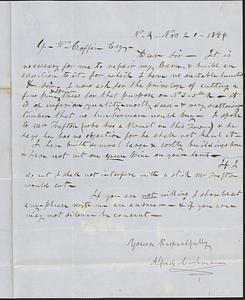 No. 4 - Nov 21 - 1844
G. W. Coffin Esqr -
Dear Sir - It is
necessary for me to repair my Barn, & build an
addition to it, for which I have no suitable lumber
I now ask for the privilege of cutting a
few pine trees for that purpose on No.
is of inferior quality, mostly down & very scattering
timber that no lumberman would buy. I spoke
to Mr (who has a permit on the Town) & he
says he has no objection for he shall not that
I have built several large & costly buildings here
& have not cut on green Pine on your land.
If I
do cut I shall not interfere with a stick Mr
would cut.
If you are not willing I should cut
please write me an answer - & if you are
may not silence be consent -
Yours Respectfully
Alfred Cushman